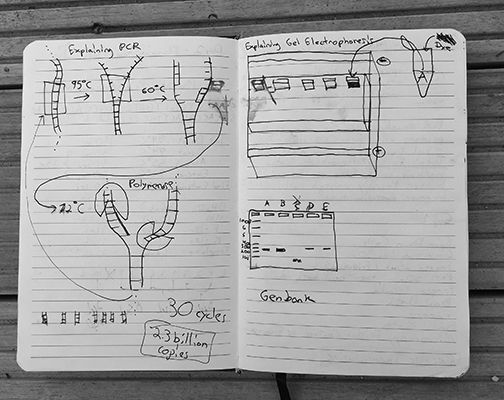 Explaining PCR
95°C
60°C
72°C
Polymerase
30 cycles
2.3 billion
copies
Explaining Gel Electrophoresis
Dye
A
A B C D E
1000
200
100
Genbank